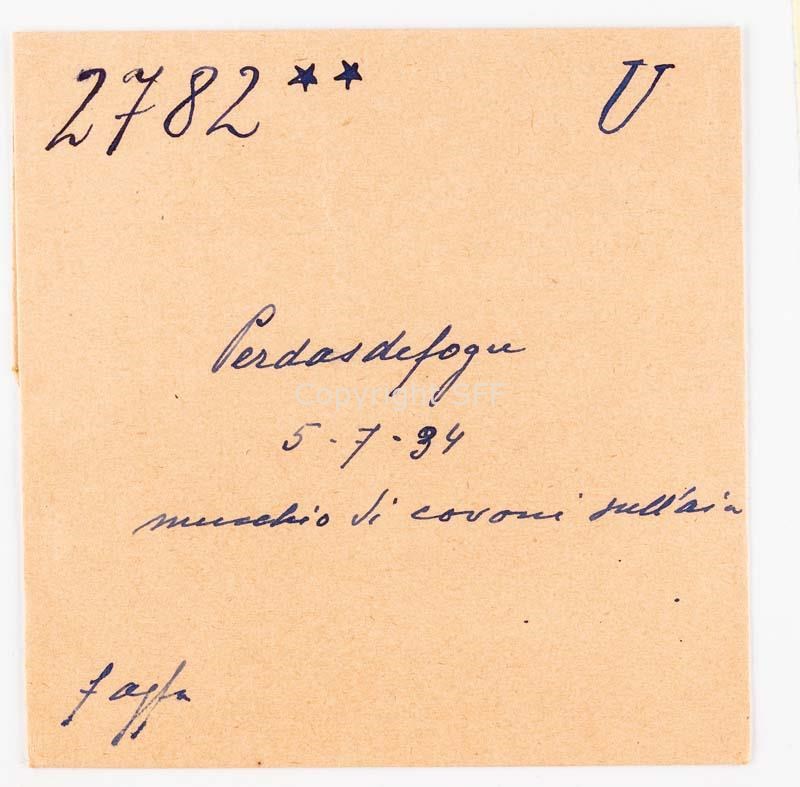 2782** U
Perdasdefogu
Copyright SFF
5-7-34
mucchio di covoni sull'aia
f agfa